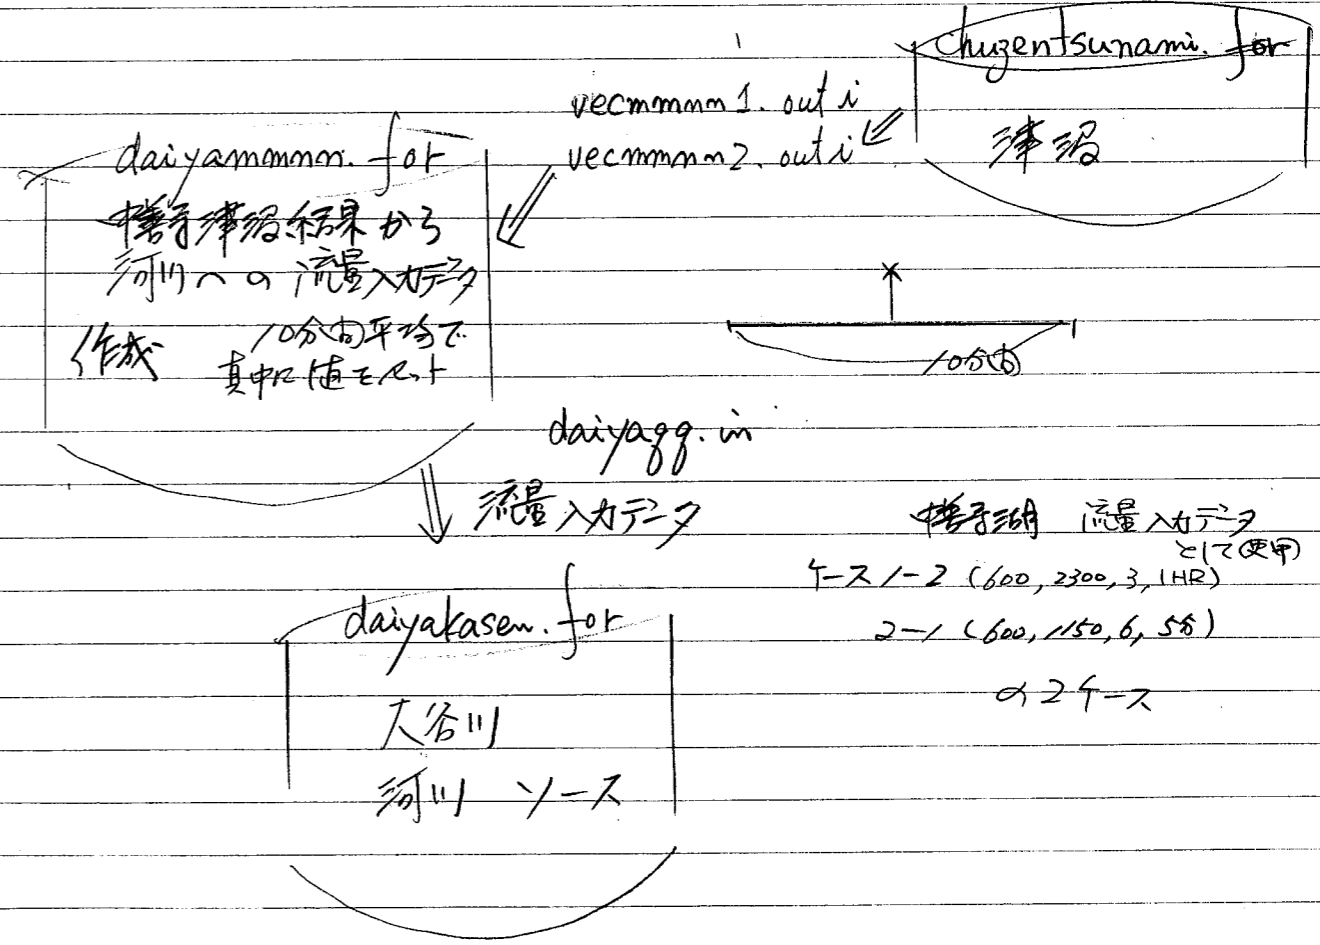 chuzentsunami.for
津波
vecmmmnn1.outi
vecmmmnn2.outi
daiyammmnn.for
中禅寺津波結果から
河川への流量入力データ
作成 10分間平均で
真中に値をセット
10分間
daiyaqq.in
流量入力データ
中禅寺湖 流量入力データ
として使用
ケース1-2 (600, 2300, 3, 1HR)
2-1 (600, 1150, 6, 5分)
の2ケース
daiyakasen.for
大谷川
河川 ソース